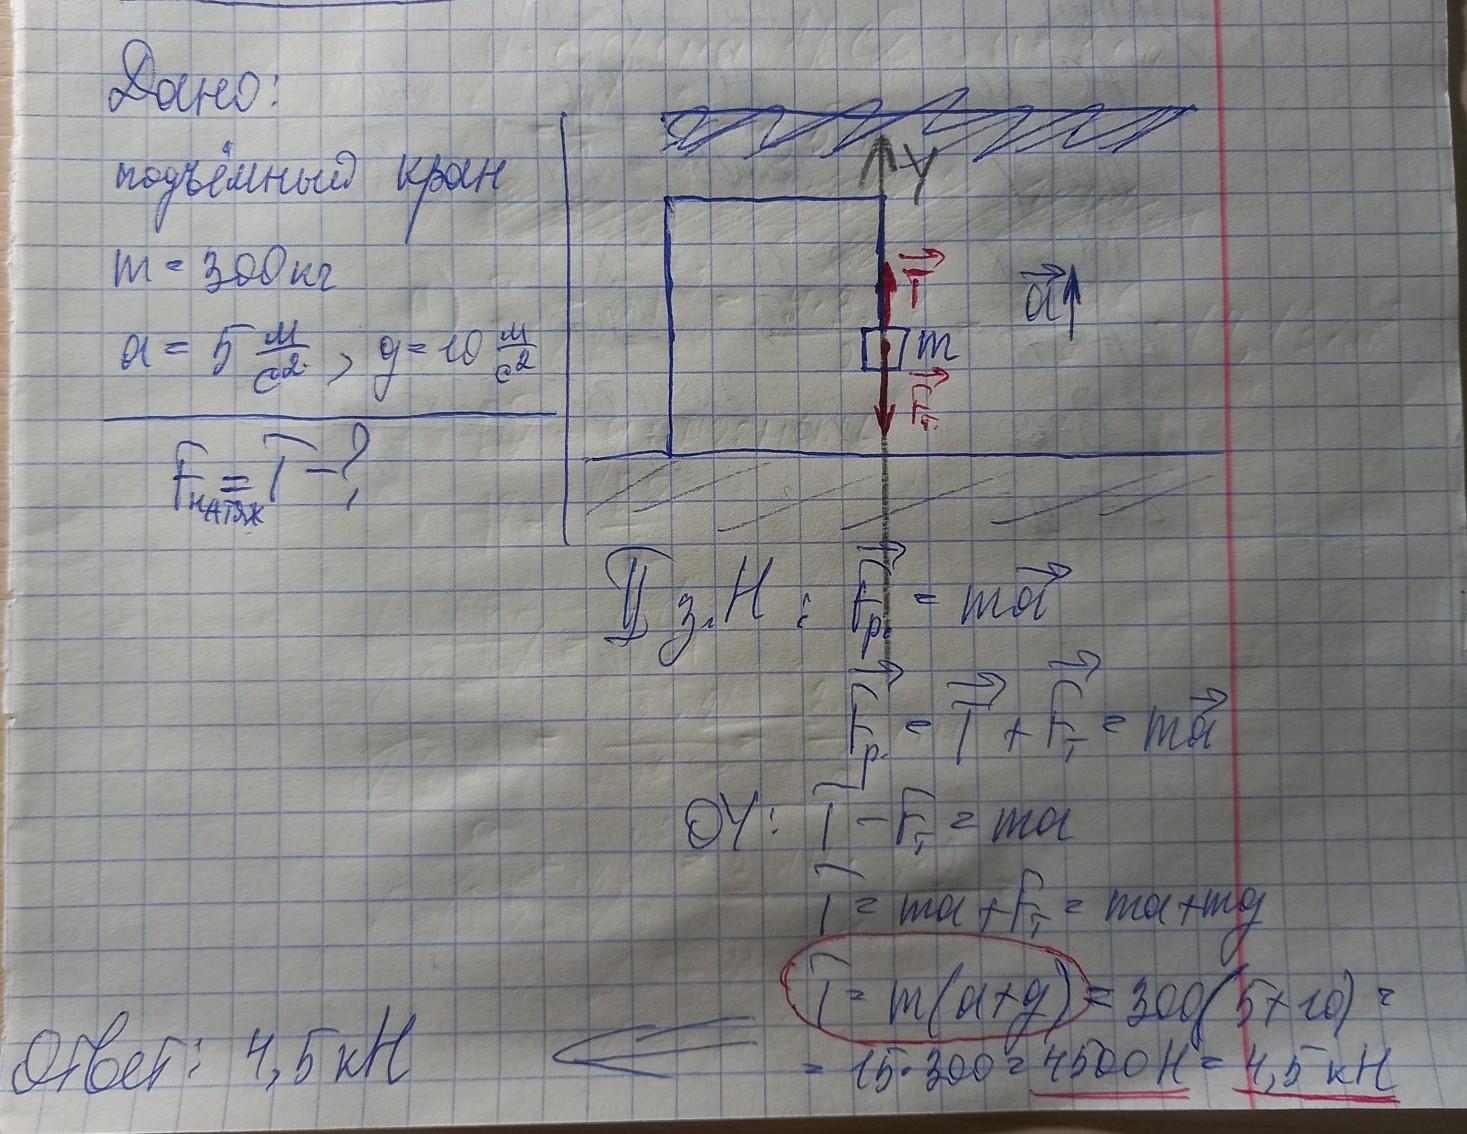 Дано:
подъёмный кран
m = 300кг
a = 5 м/с², g = 10 м/с²
Fнатяж = T - ?
Y
T
a
m
Fт
II з.Н: Fр. = ma
Fр. = T + Fт = ma
OY: T - Fт = ma
T = ma + Fт = ma + mg
T = m(a+g) = 300(5+10) =
= 15·300 = 4500Н = 4,5 кН
Ответ: 4,5 кН